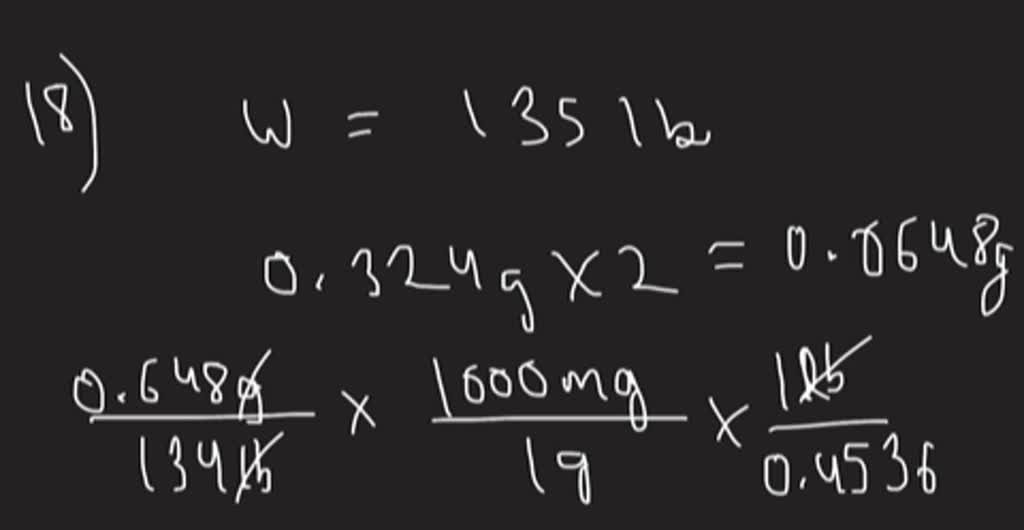 18) W = 135 lb
0.324g x 2 = 0.0648g
0.648g/134lb x 1000mg/1g x 1lb/0.4536